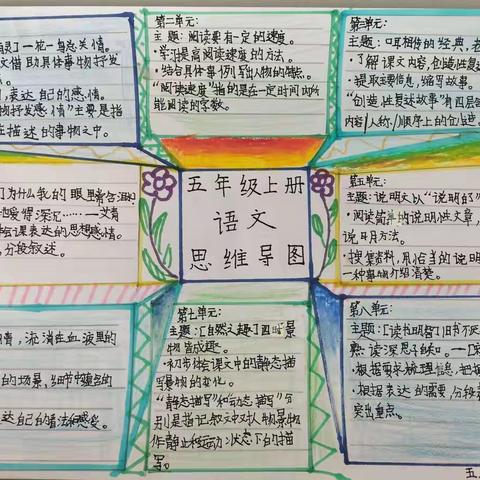 一花一鸟总关情。
文借助具体事物抒发
表达自己的感情。
物抒发感情"主要是指
在描述的事物中。
第二单元:
主题:阅读要有一定的速度。
·学习提高阅读速度的方法。
·结合具体事例写出人物的特点。
"阅读速度"指的是在一定时间内所
能阅读的字数。
第三单元:
主题:口耳相传的经典,老
·了解课文内容,创造性复述
·提取主要信息,缩写故事。
"创造性复述故事"有四层含
内容/人称/顺序上的创造
们为什么我的眼里常含泪
爱得深沉……——艾青
会课文表达的思想感情。
分段叙述。
五年级上册
语文
思维导图
第五单元:
主题:说明文以"说明白了"
·阅读简单的说明性文章,
说明方法。
·搜集资料,用恰当的说明
一种事物介绍清楚。
情,流淌在血液里的
的场景,细节中蕴含的
达自己的看法和感受。
第七单元:
主题:[自然之趣]四时景
物皆成趣。
·初步体会课文中的静态描
写景物的变化。
"静态描写"和动态描写"分
别是指记叙文中对人物景物
作静止和运动状态下的描
写。
第八单元:
主题:[读书明智]旧书不厌
熟读深思子自知。
·根据要求梳理信息,把握
·根据表达的需要,分段
突出重点。
五